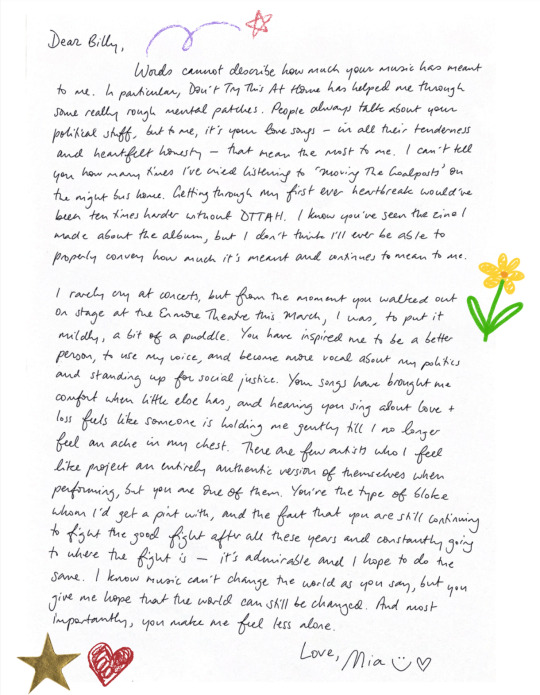 Dear Billy,
Words cannot describe how much your music has meant
to me. In particular, Don't Try This At Home has helped me through
some really rough mental patches. People always talk about your
political stuff, but to me, it's your love songs – in all their tenderness
and heartfelt honesty – that mean the most to me. I can't tell
you how many times I've cried listening to "Moving The Goalposts' on
the night bus home. Getting through my first ever heartbreak would've
been ten times harder without DTTAH. I know you've seen the zine I
made about the album, but I don't think I'll ever be able to
properly convey how much it's meant and continues to mean to me.
I rarely cry at concerts, but from the moment you walked out
on stage at the Enmore Theatre this March, I was, to put it
mildly, a bit of a puddle. You have inspired me to be a better
person, to use my voice, and become more vocal about my politics
and standing up for social justice. Your songs have brought me
comfort when little else has, and hearing you sing about love +
loss feels like someone is holding me gently till I no longer
feel an ache in my chest. There are few artists who I feel
like project an entirely authentic version of themselves when
performing, but you are one of them. You're the type of bloke
whom I'd get a pint with, and the fact that you are still continuing
to fight the good fight after all these years and constantly going
to where the fight is – it's admirable and I hope to do the
same. I know music can't change the world as you say, but you
give me hope that the world can still be changed. And most
importantly, you make me feel less alone.
Love, Mia